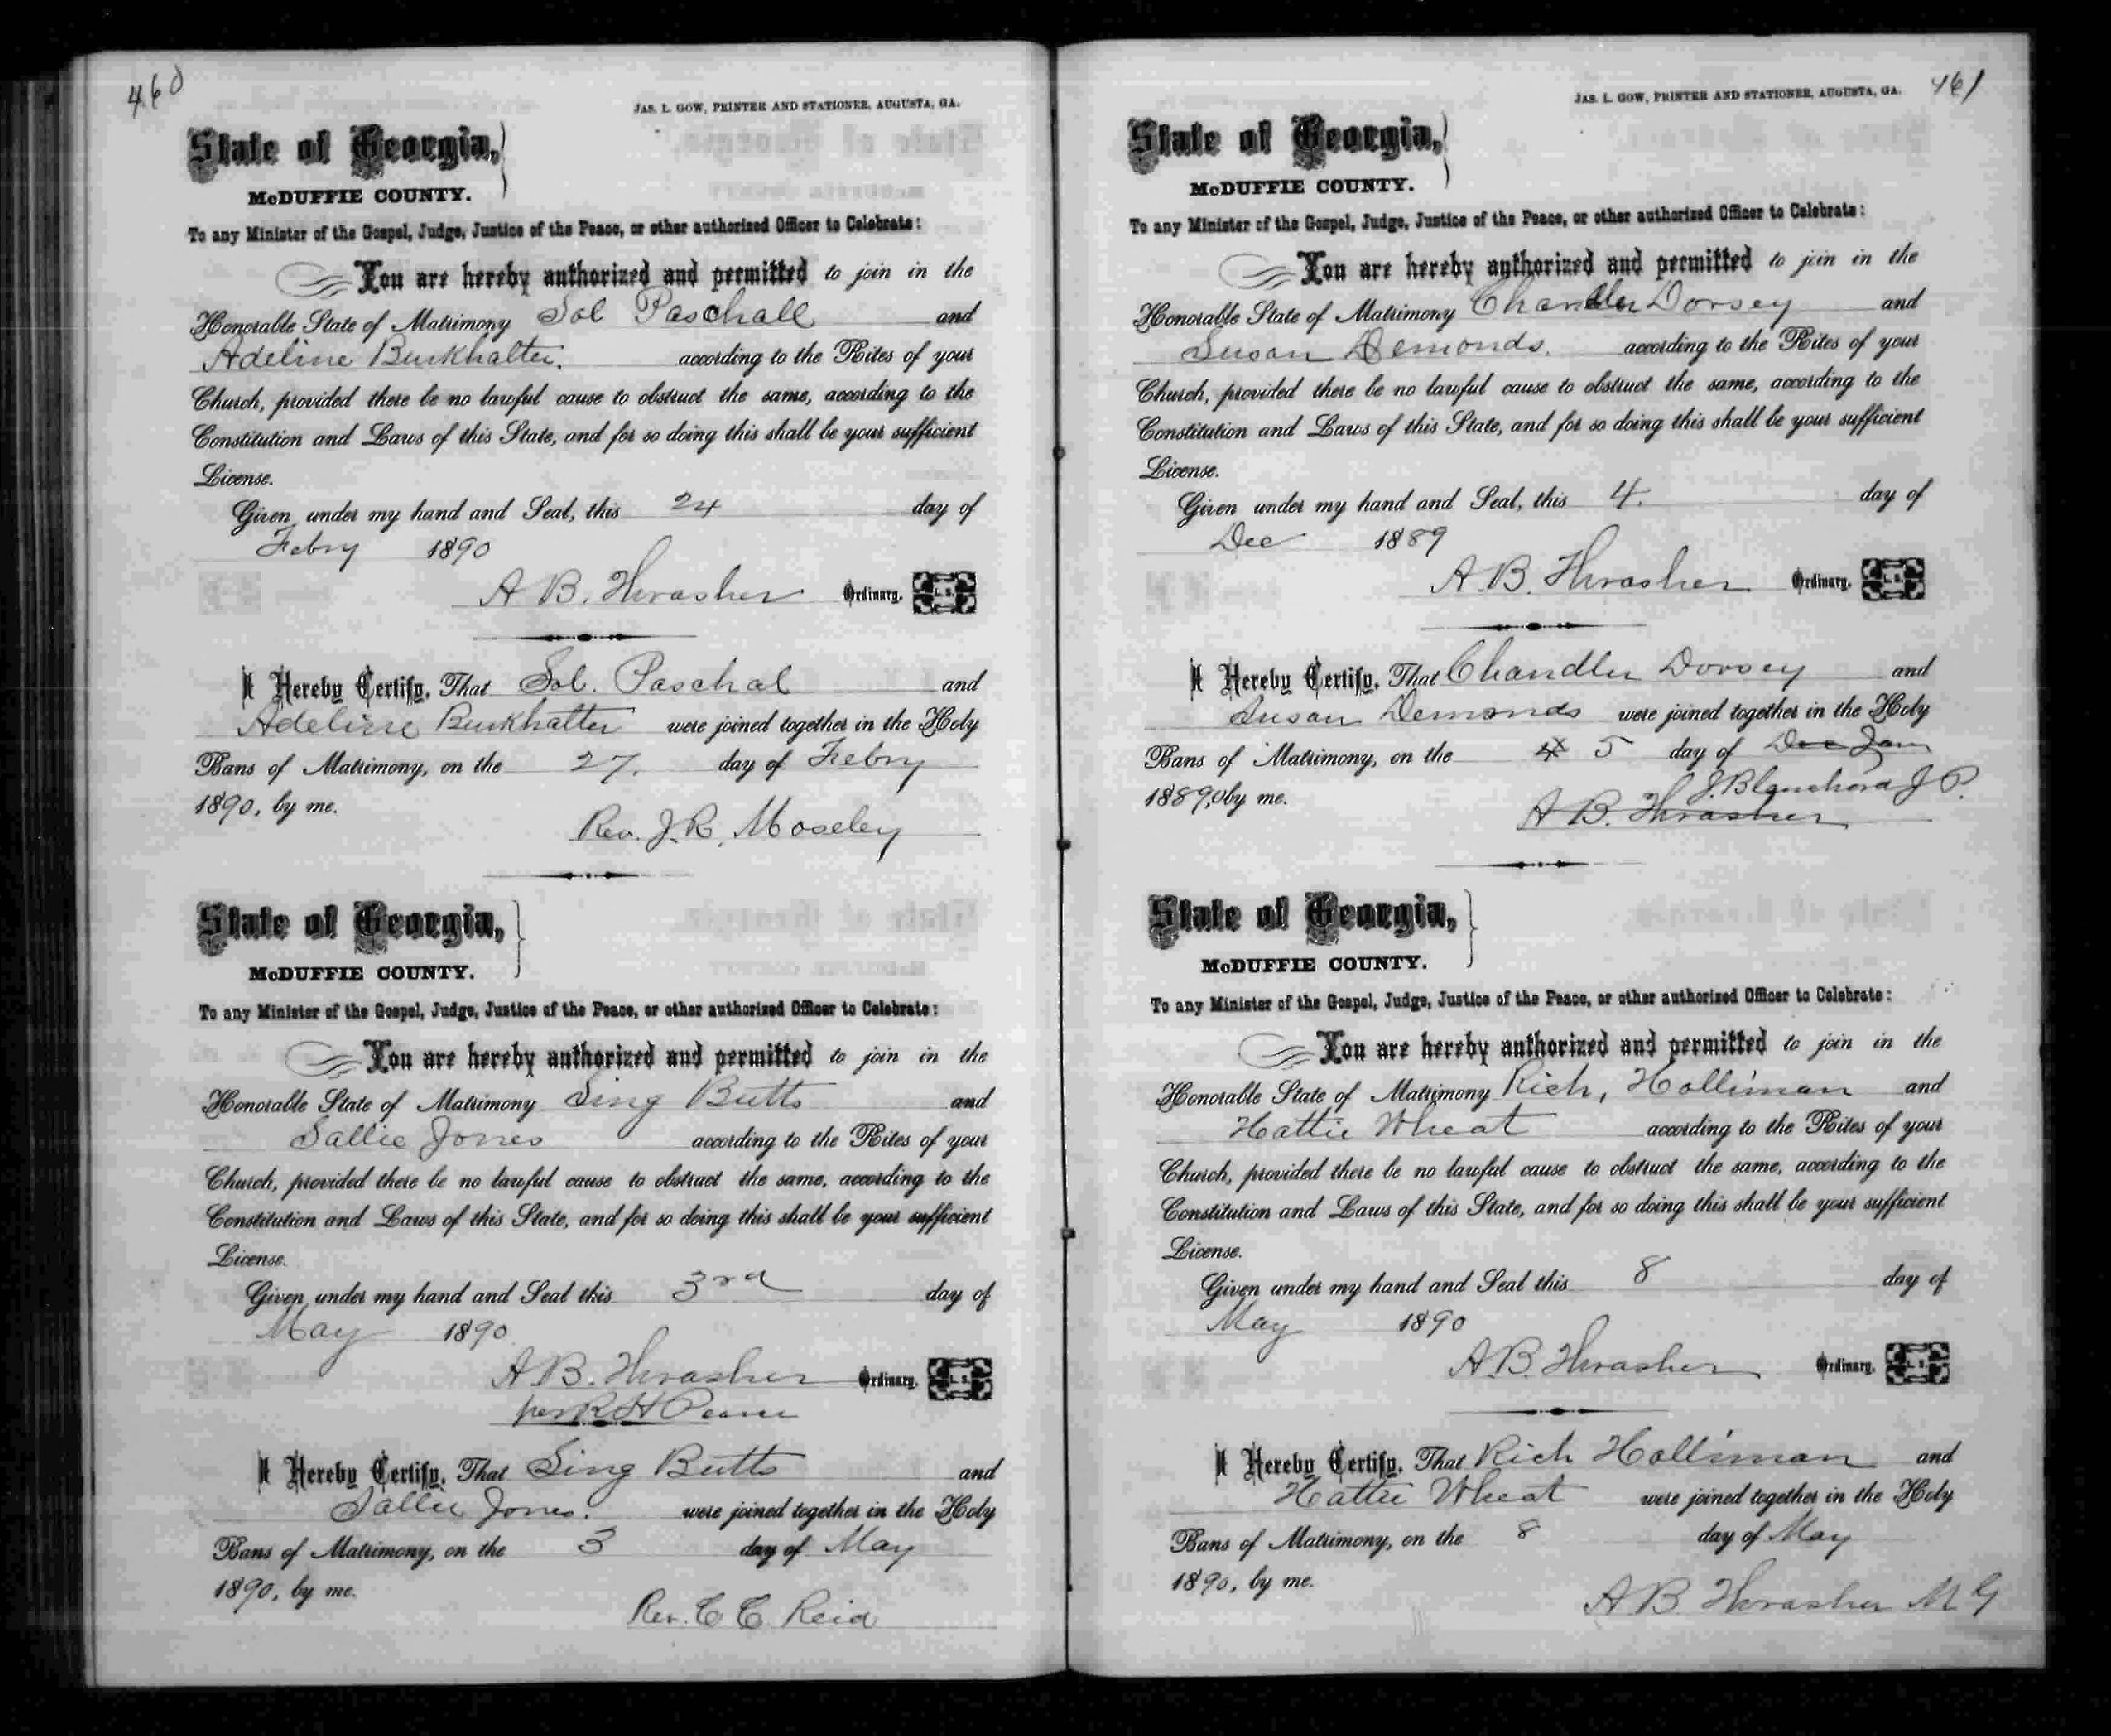 460
JAS. L. GOW, PRINTER AND STATIONER, AUGUSTA, GA.
State of Georgia,
McDUFFIE COUNTY.
To any Minister of the Gospel, Judge, Justice of the Peace, or other authorized Officer to Celebrate:
You are hereby authorized and permitted to join in the
Honorable State of Matrimony Sol Paschall and
Adeline Burkhalter. according to the Rites of your
Church, provided there be no lawful cause to obstruct the same, according to the
Constitution and Laws of this State, and for so doing this shall be your sufficient
License.
Given under my hand and Seal, this 24 day of
Febry 1890
A B. Thrasher Ordinary. L.S.
I Hereby Certify, That Sol. Paschal and
Adeline Burkhalter were joined together in the Holy
Bans of Matrimony, on the 27. day of Febry
1890, by me.
Rev. J. R. Moseley
State of Georgia,
McDUFFIE COUNTY.
To any Minister of the Gospel, Judge, Justice of the Peace, or other authorized Officer to Celebrate:
You are hereby authorized and permitted to join in the
Honorable State of Matrimony Sing Butts and
Sallie Jones according to the Rites of your
Church, provided there be no lawful cause to obstruct the same, according to the
Constitution and Laws of this State, and for so doing this shall be your sufficient
License.
Given under my hand and Seal this 3rd day of
May 1890
A B. Thrasher Ordinary. L.S.
per R H Pearce
I Hereby Certify, That Sing Butts and
Sallie Jones. were joined together in the Holy
Bans of Matrimony, on the 3 day of May
1890, by me.
Rev. C C Reid
461
JAS. L. GOW, PRINTER AND STATIONER, AUGUSTA, GA.
State of Georgia,
McDUFFIE COUNTY.
To any Minister of the Gospel, Judge, Justice of the Peace, or other authorized Officer to Celebrate:
You are hereby authorized and permitted to join in the
Honorable State of Matrimony Chandler Dorsey and
Susan Demonds. according to the Rites of your
Church, provided there be no lawful cause to obstruct the same, according to the
Constitution and Laws of this State, and for so doing this shall be your sufficient
License.
Given under my hand and Seal, this 4. day of
Dec 1889
A. B. Thrasher Ordinary. L.S.
I Hereby Certify, That Chandler Dorsey and
Susan Demonds were joined together in the Holy
Bans of Matrimony, on the 4 5 day of Dec Jan
1889,0 by me. J. Blanchard J P.
A B. Thrasher
State of Georgia,
McDUFFIE COUNTY.
To any Minister of the Gospel, Judge, Justice of the Peace, or other authorized Officer to Celebrate:
You are hereby authorized and permitted to join in the
Honorable State of Matrimony Rich, Holliman and
Hattie Wheat according to the Rites of your
Church, provided there be no lawful cause to obstruct the same, according to the
Constitution and Laws of this State, and for so doing this shall be your sufficient
License.
Given under my hand and Seal this 8 day of
May 1890
A. B. Thrasher Ordinary. L.S.
I Hereby Certify, That Rich Holliman and
Hattie Wheat were joined together in the Holy
Bans of Matrimony, on the 8 day of May
1890, by me.
A B. Thrasher M G